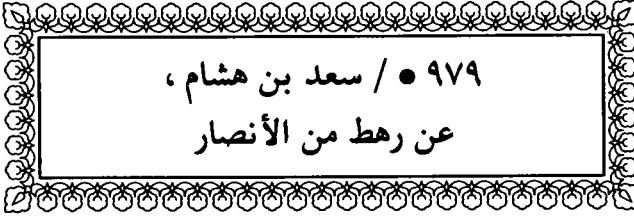 ٩٧٩ • / سعد بن هشام ،
عن رهط من الأنصار